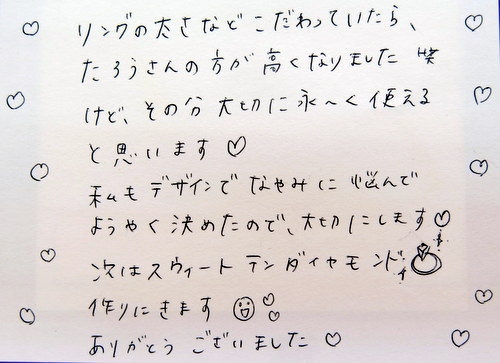 リングの太さなどこだわっていたら、
たろうさんの方が高くなりました 笑
けど、その分大切に永〜く使える
と思います♡
私もデザインでなやみに悩んで
ようやく決めたので、大切にします♡
次はスウィートテンダイヤモンド
作りにきます
ありがとうございました♡